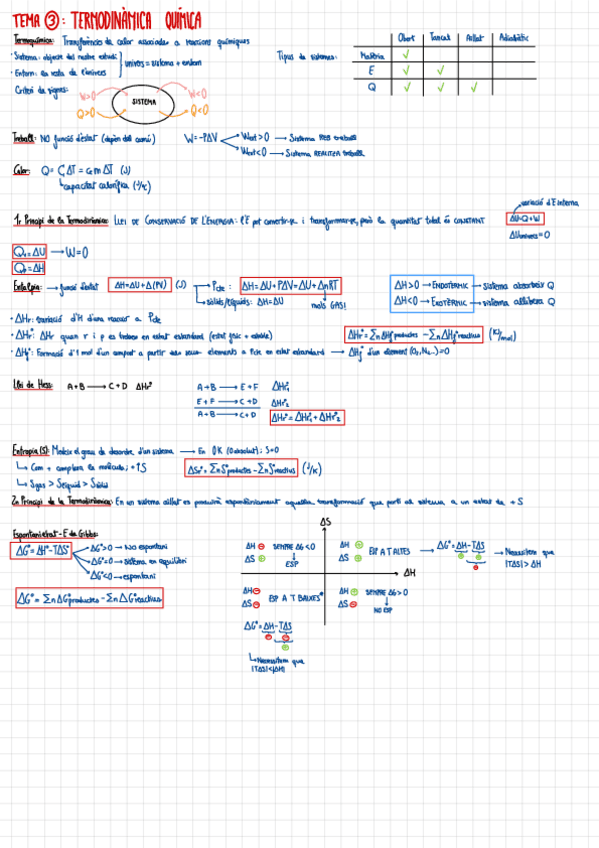 TEMA ③: TERMODINÀMICA QUÍMICA
Termoquímica: Transferències de calor associades a reaccions químiques
· Sistema: objecte del nostre estudi
· Entorn: la resta de l'univers
univers = sistema + entorn
Tipus de sistemes:
Obert Tancat Aïllat Adiabàtic
Matèria ✓
E ✓ ✓
Q ✓ ✓ ✓
Criteri de signes:
W>0 SISTEMA W<0
Q>0 Q<0
Treball: NO funció d'estat (depèn del camí) W=-PΔV
Wext>0 → Sistema REB treball
Wext<0 → Sistema REALITZA treball
Calor: Q= C ΔT = Ce m ΔT (J)
capacitat calorífica (J/K)
1r Principi de la Termodinàmica: LLEI DE CONSERVACIÓ DE L'ENERGIA: l'E pot convertir-se i transformar-se, però la quantitat total és CONSTANT
variació d'E interna
ΔU=Q+W
ΔUunivers=0
Qv=ΔU → W=0
Qp=ΔH
Entalpia: → funció d'estat ΔH=ΔU+Δ(PV) (J)
Pcte: ΔH=ΔU+PΔV=ΔU+ΔnRT
mols GAS!
sòlids/líquids: ΔH=ΔU
ΔH>0 → ENDOTÈRMIC → sistema absorbeix Q
ΔH<0 → EXOTÈRMIC → sistema allibera Q
· ΔHr: variació d'H d'una reacció a Pcte
· ΔHr°: ΔHr quan r i p es troben en estat estàndard (estat físic + estable)
ΔHr°=ΣnΔHf°productes - ΣnΔHf°reactius (KJ/mol)
· ΔHf°: Formació d'1 mol d'un compost a partir dels seus elements a Pcte en estat estàndard → ΔHf° d'un element (O2, N2...)=0
Llei de Hess: A+B → C+D ΔHr°
A+B → E+F ΔHr°1
E+F → C+D ΔHr°2
A+B → C+D ΔHr°=ΔHr°1+ΔHr°2
Entropia (S): Mesura el grau de desordre d'un sistema → En 0K (0 absolut); S=0
Com + complexa la molècula; +↑S
ΔSr°=ΣnS°productes - ΣnS°reactius (J/K)
Sgas > Slíquid > Sòlid
2n Principi de la Termodinàmica: En un sistema aïllat es produirà espontàniament aquella transformació que porti al sistema a un estat de +S
Espontaneïtat - E de Gibbs:
ΔG°=ΔH°-TΔS°
ΔG°>0 → NO espontani
ΔG°=0 → sistema en equilibri
ΔG°<0 → espontani
ΔG°=ΣnΔG°productes - ΣnΔG°reactius
ΔS
ΔH
ΔH ⊖ SEMPRE ΔG<0
ΔS ⊕ ESP
ΔH ⊕
ΔS ⊕
ESP A T ALTES → ΔG°=ΔH-TΔS → Necessitem que
|TΔS|>ΔH
ΔH ⊖
ΔS ⊖
ESP A T BAIXES
ΔH ⊕ SEMPRE ΔG>0
ΔS ⊖ NO ESP
ΔG°=ΔH-TΔS
Necessitem que
|TΔS|<|ΔH|